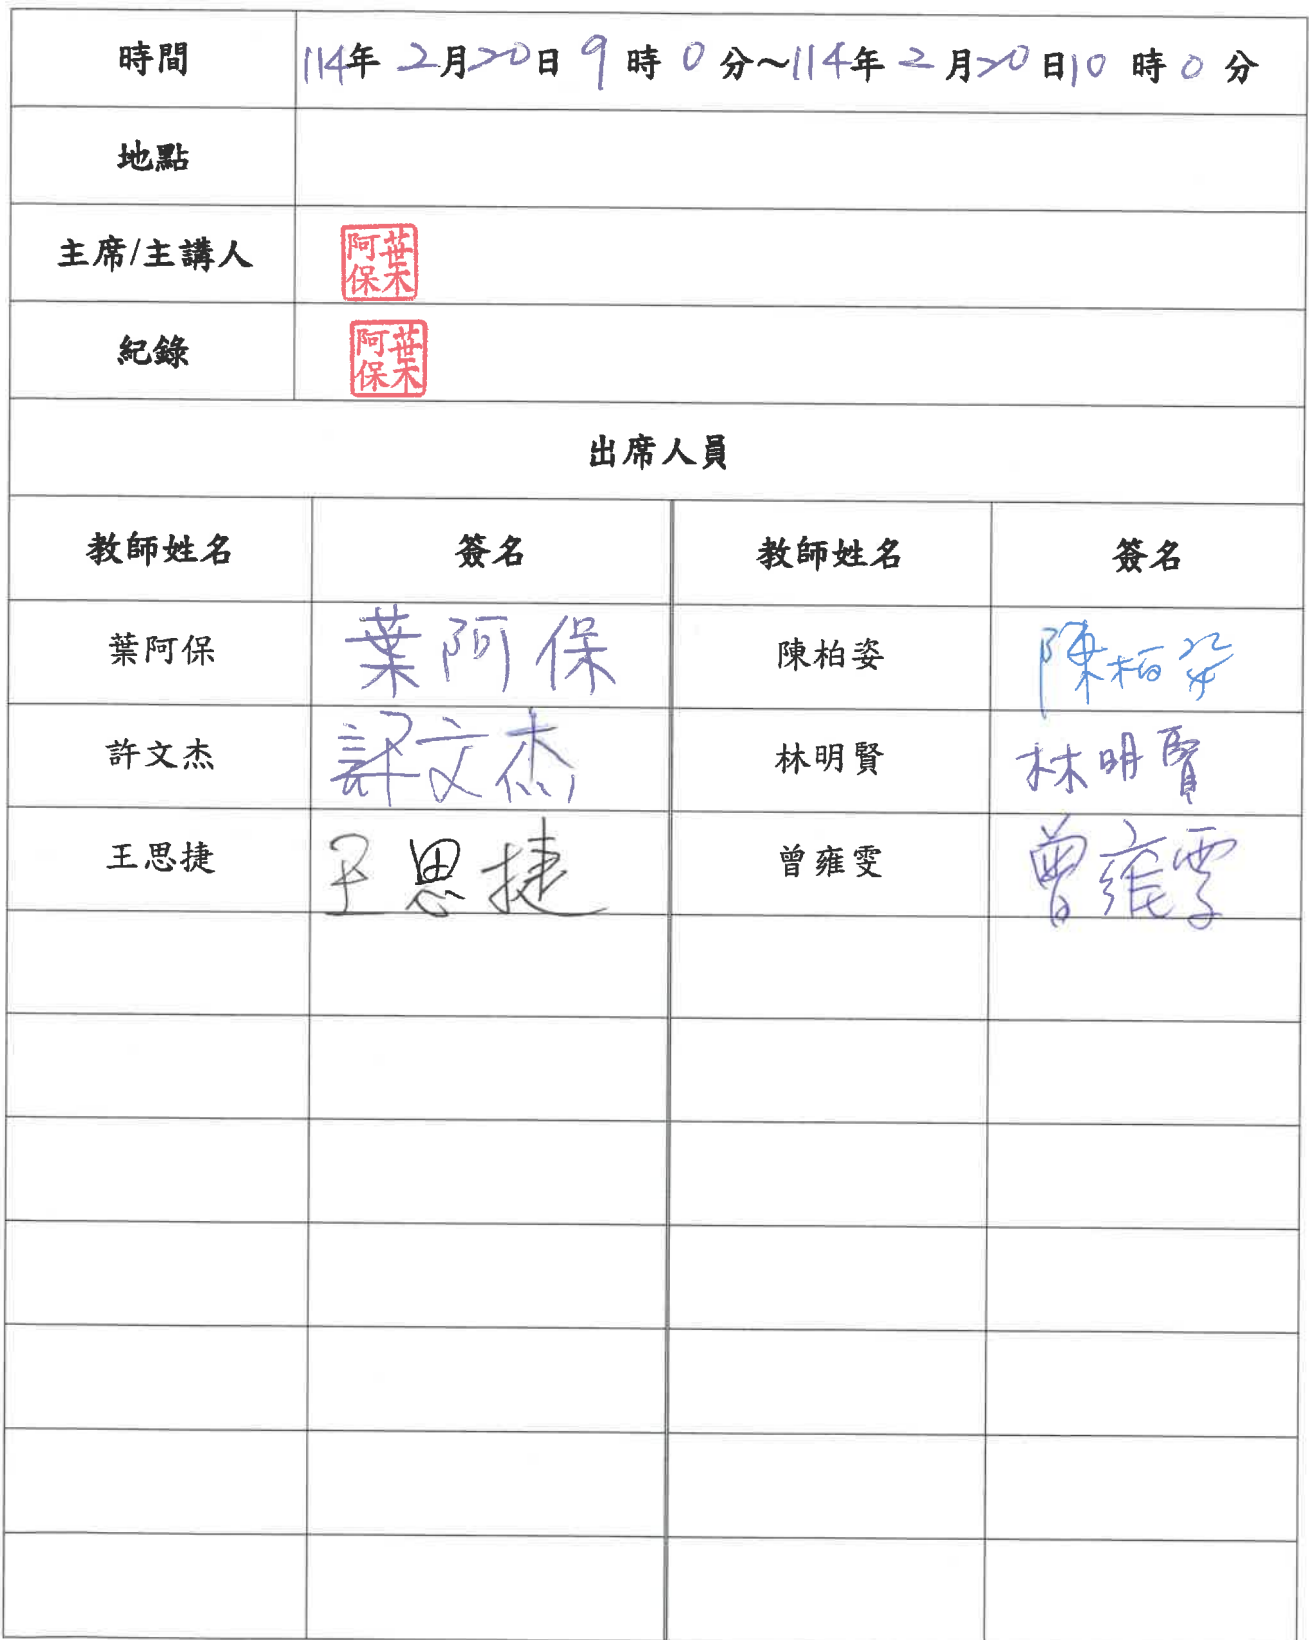 時間 114年 2月20日 9時 0分～114年 2月20日10時 0分
地點
主席/主講人 葉阿保
紀錄 葉阿保
出席人員
教師姓名 簽名 教師姓名 簽名
葉阿保 葉阿保 陳柏姿 陳柏姿
許文杰 許文杰 林明賢 林明賢
王思捷 王思捷 曾雍雯 曾雍雯